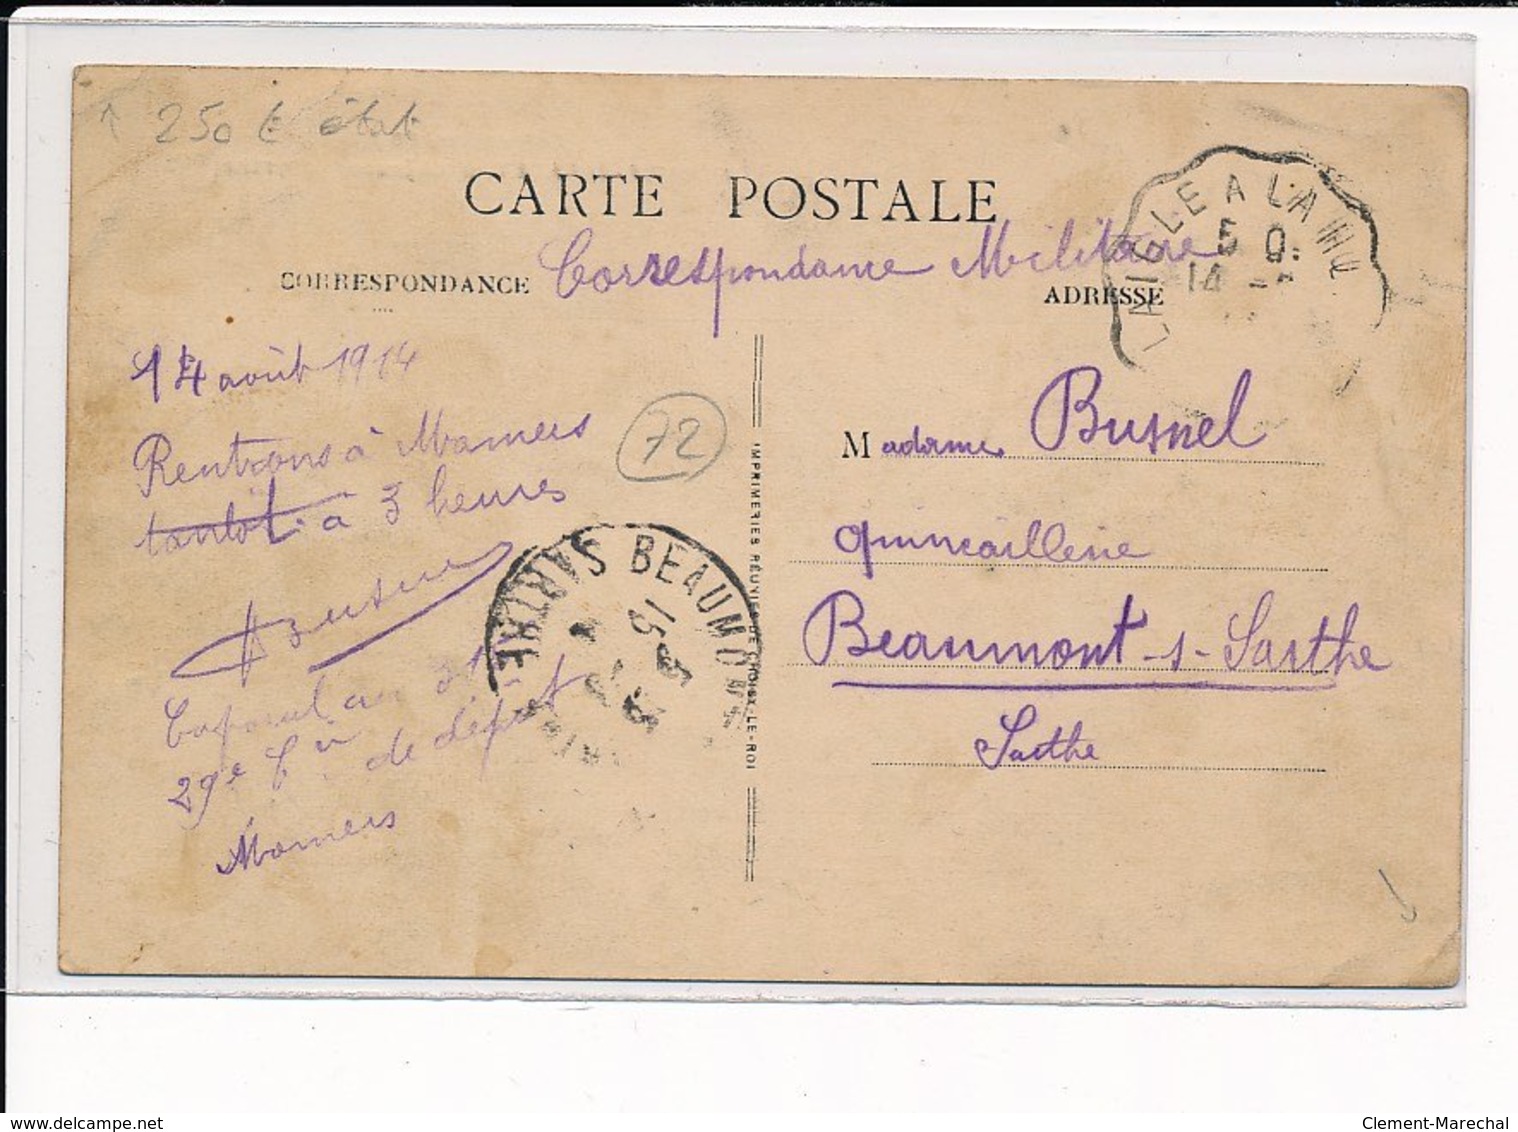 250 € état
CARTE POSTALE
CORRESPONDANCE
Correspondance Militaire
ADRESSE
LAIGLE A LA HU
5 0
14
14 août 1914
Rentrons à Mamers
tantôt à 3 heures
72
Caporal au
29e Cie de dépôt
Mamers
BEAUMONT
SARTHE
15
IMPRIMERIES RÉUNIES DE CHOISY-LE-ROI
Madame Busnel
quincaillerie
Beaumont-s-Sarthe
Sarthe
Clement-Marechal
www.delcampe.net